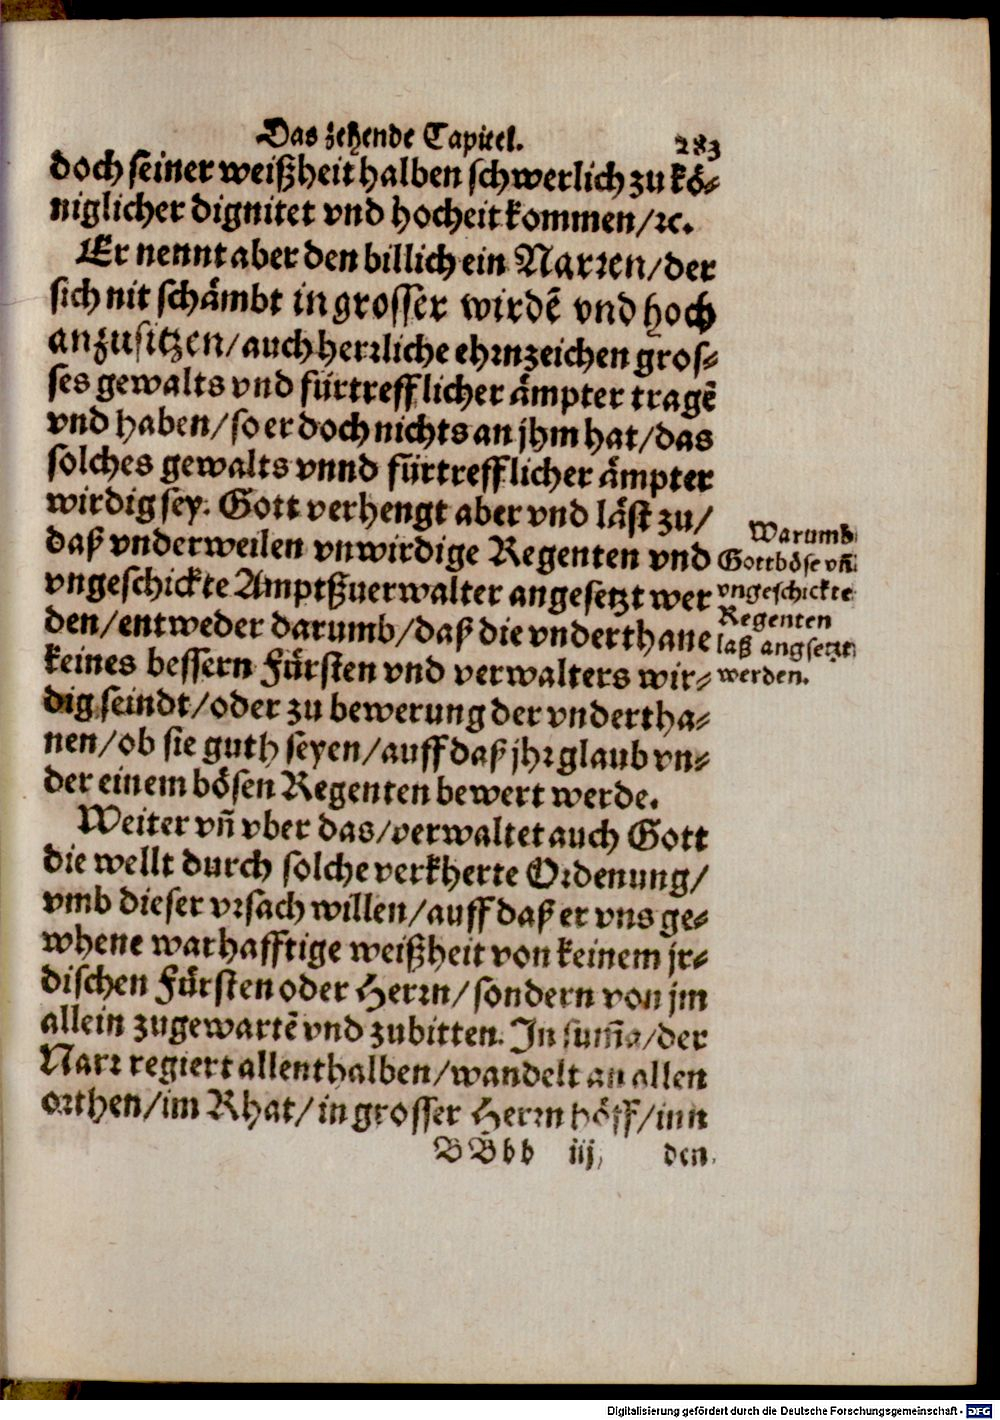 Das zehende Capitel. 283
doch seiner weißheit halben schwerlich zu kö-
niglicher dignitet vnd hocheit kommen/ꝛc.
Er nennt aber den billich ein Narren/der
sich nit schämbt in grosser wirdē vnd hoch
anzusitzen/auch herrliche ehrnzeichen gros-
ses gewalts vnd fürtrefflicher ämpter tragē
vnd haben/so er doch nichts an jhm hat/das
solches gewalts vnnd fürtrefflicher ämpter
wirdig sey. Gott verhengt aber vnd läst zu/
daß vnderweilen vnwirdige Regenten vnd
vngeschickte Amptßuerwalter angesetzt wer
den/entweder darumb/daß die vnderthane
keines bessern Fürsten vnd verwalters wir-
dig seindt/oder zu bewerung der vndertha-
nen/ob sie guth seyen/auff daß jhr glaub vn-
der einem bösen Regenten bewert werde.
Weiter vñ vber das/verwaltet auch Gott
die wellt durch solche verkherte Ordenung/
vmb dieser vrsach willen/auff daß er vns ge-
whene warhafftige weißheit von keinem jr-
dischen Fürsten oder Herrn/sondern von jm
allein zugewartē vnd zubitten. In sum̄a/der
Narr regiert allenthalben/wandelt an allen
orthen/im Rhat/in grosser Herrn höff/inn
BBbb iij den
Warumb
Gott böse vñ
vngeschickte
Regenten
laß angsetzt
werden.
Digitalisierung gefördert durch die Deutsche Forschungsgemeinschaft - DFG